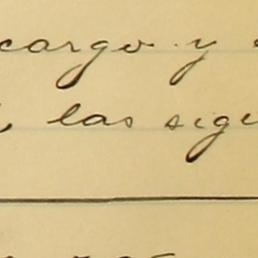 cargo y
las sigu